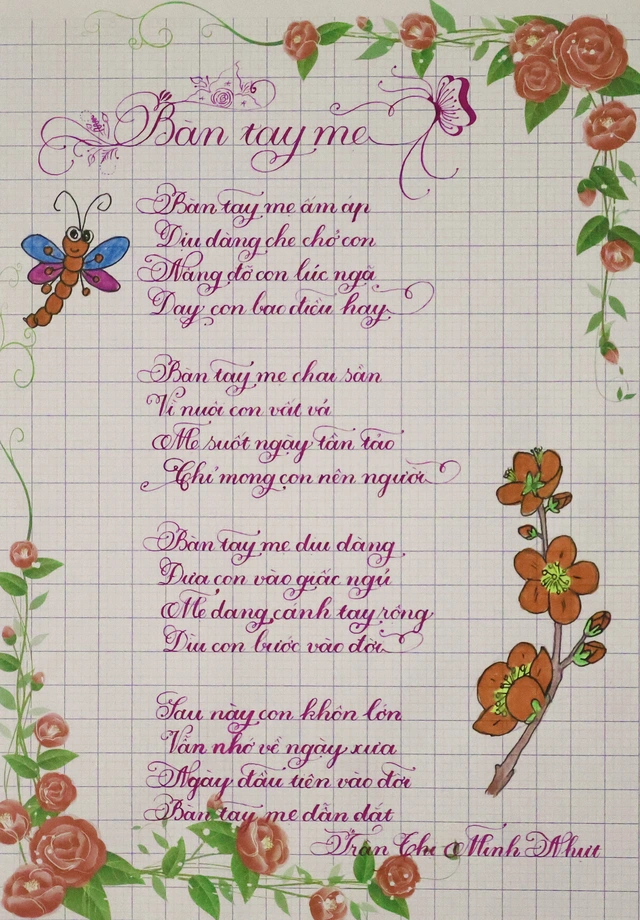 Bàn tay mẹ
Bàn tay mẹ ấm áp
Dịu dàng che chở con
Nâng đỡ con lúc ngã
Dạy con bao điều hay
Bàn tay mẹ chai sần
Vì nuôi con vất vả
Mẹ suốt ngày tần tảo
Chỉ mong con nên người
Bàn tay mẹ dịu dàng
Đưa con vào giấc ngủ
Mẹ dang cánh tay rộng
Dìu con bước vào đời
Sau này con khôn lớn
Vẫn nhớ về ngày xưa
Ngày đầu tiên vào đời
Bàn tay mẹ dẫn dắt
Trần Thị Minh Nhựt